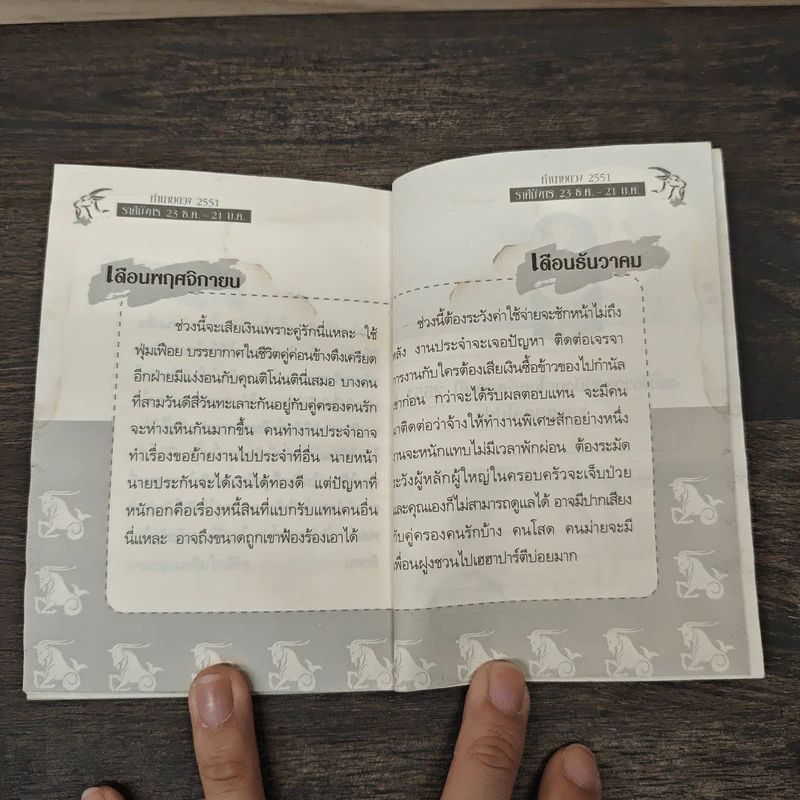 ทำนายดวง 2551
ราศีมังกร 23 ธ.ค. - 21 ม.ค.
เดือนพฤศจิกายน
ช่วงนี้จะเสียเงินเพราะคู่รักนี่แหละ ใช้
ฟุ่มเฟือย บรรยากาศในชีวิตคู่ค่อนข้างตึงเครียด
อีกฝ่ายมีแง่งอนกับคุณติโน่นตินี่เสมอ บางคน
ที่สามวันดีสี่วันทะเลาะกันอยู่กับคู่ครองคนรัก
จะห่างเหินกันมากขึ้น คนทำงานประจำอาจ
ทำเรื่องขอย้ายงานไปประจำที่อื่น นายหน้า
นายประกันจะได้เงินได้ทองดี แต่ปัญหาที่
หนักอกคือเรื่องหนี้สินที่แบกรับแทนคนอื่น
นี่แหละ อาจถึงขนาดถูกเขาฟ้องร้องเอาได้
ทำนายดวง 2551
ราศีมังกร 23 ธ.ค. - 21 ม.ค.
เดือนธันวาคม
ช่วงนี้ต้องระวังค่าใช้จ่ายจะชักหน้าไม่ถึง
หลัง งานประจำจะเจอปัญหา ติดต่อเจรจา
การงานกับใครต้องเสียเงินซื้อข้าวของไปกำนัล
เขาก่อน กว่าจะได้รับผลตอบแทน จะมีคน
มาติดต่อว่าจ้างให้ทำงานพิเศษสักอย่างหนึ่ง
งานจะหนักแทบไม่มีเวลาพักผ่อน ต้องระมัด
ระวังผู้หลักผู้ใหญ่ในครอบครัวจะเจ็บป่วย
และคุณเองก็ไม่สามารถดูแลได้ อาจมีปากเสียง
กับคู่ครองคนรักบ้าง คนโสด คนม่ายจะมี
เพื่อนฝูงชวนไปเฮฮาปาร์ตี้บ่อยมาก